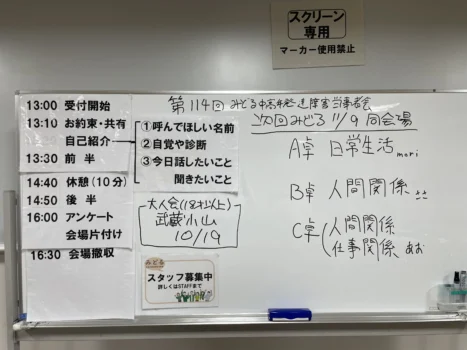 スクリーン
専用
マーカー使用禁止
第114回 みどる中高年発達障害当事者会
次回みどる 11/9 同会場
13:00 受付開始
13:10 お約束・共有
自己紹介
13:30 前 半
①呼んでほしい名前
②自覚や診断
③今日話したいこと
聞きたいこと
14:40 休憩(10分)
14:50 後 半
16:00 アンケート
会場片付け
16:30 会場撤収
大人会(18才以上)
武蔵小山
10/19
みどる
スタッフ募集中
詳しくはSTAFFまで
A卓 日常生活 mori
B卓 人間関係
C卓 人間関係
仕事関係 あお